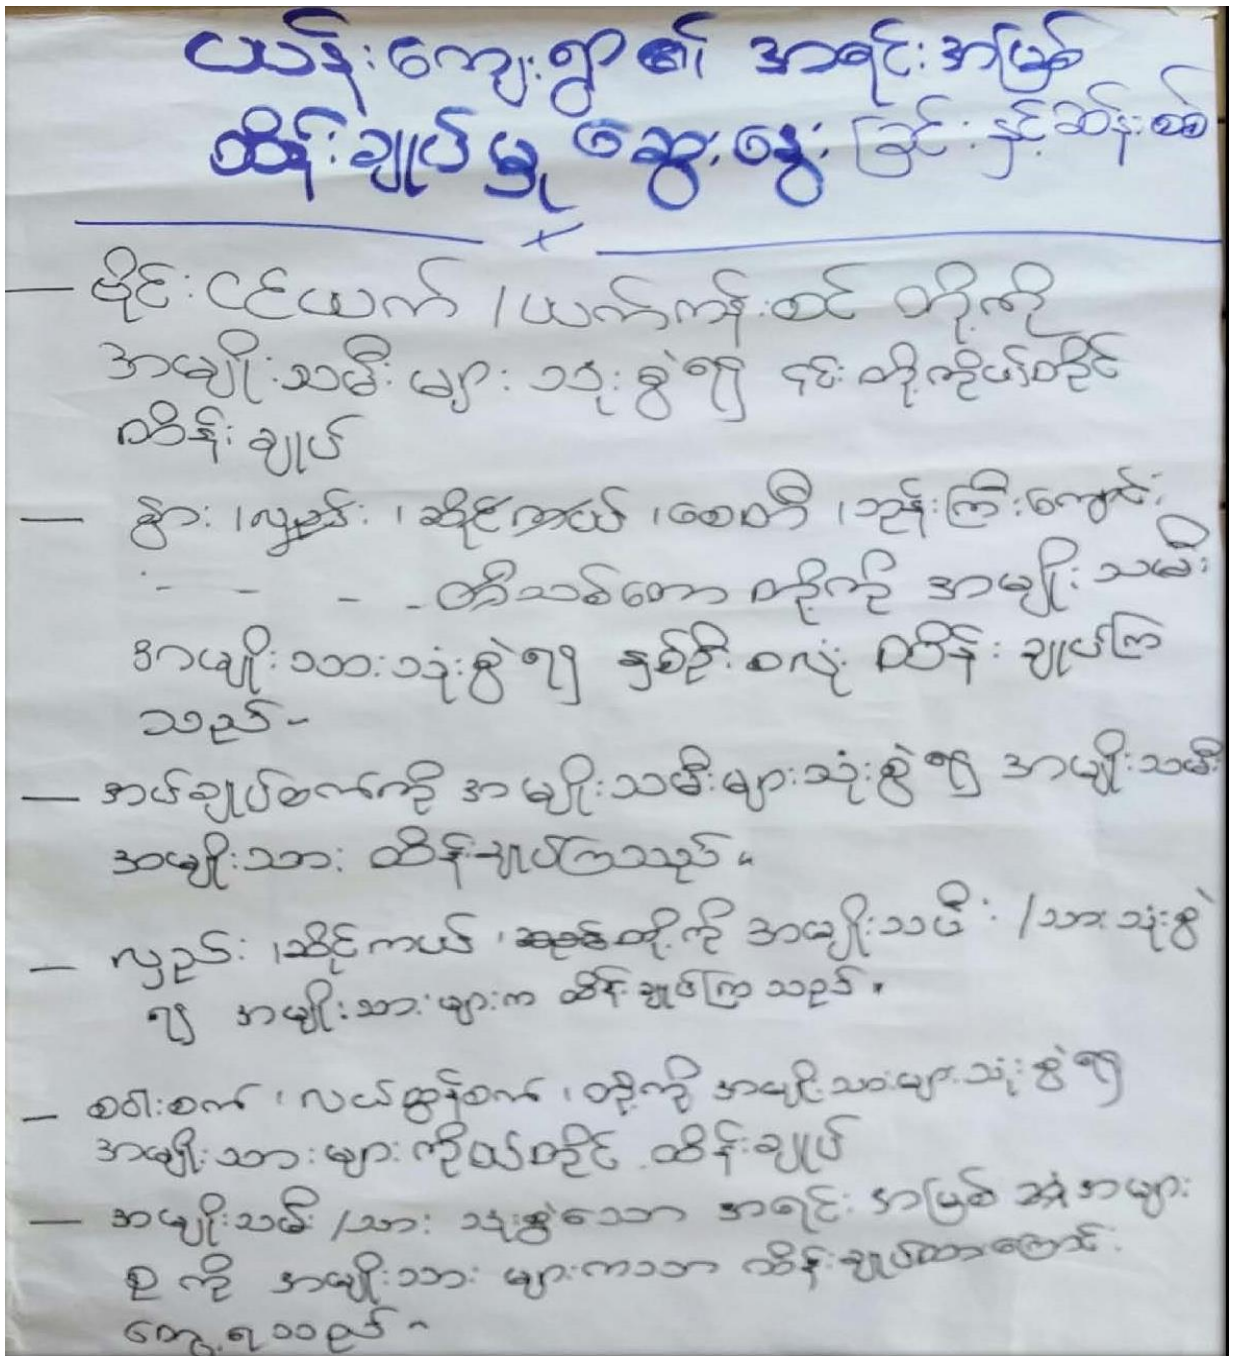 ငယ်န်းကျေးရွာ၏ အရင်းအမြစ်
ထိန်းချုပ်မှု ဆွေးနွေးခြင်းနှင့်ဆန်းစစ်
— ဗိုင်းငင်ယက် / ယက်ကန်းစင် တို့ကို
အမျိုးသမီးများသုံးစွဲ၍ ၎င်းတို့ကိုယ်တိုင်
ထိန်းချုပ်
— နွား ၊ လှည်း ၊ ဆိုင်ကယ် ၊ စေတီ ၊ ဘုန်းကြီးကျောင်း
- - - - တီသစ်တော တို့ကို အမျိုးသမီး
အမျိုးသားသုံးစွဲ၍ နှစ်ဦးစလုံး ထိန်းချုပ်ကြ
သည်-
— အပ်ချုပ်စက်ကို အမျိုးသမီးများသုံးစွဲ၍ အမျိုးသမီး
အမျိုးသား ထိန်းချုပ်ကြသည်။
— လှည်း ၊ ဆိုင်ကယ် ၊ တို့ကို အမျိုးသမီး / သားသုံးစွဲ
၍ အမျိုးသားများက ထိန်းချုပ်ကြသည်။
— စပါးစက် ၊ လယ်ထွန်စက် ၊ တို့ကို အမျိုးသားများသုံးစွဲ၍
အမျိုးသားများကိုယ်တိုင် ထိန်းချုပ်
— အမျိုးသမီး / သား သုံးစွဲသော အရင်းအမြစ် အများ
စုကို အမျိုးသားများကသာ ထိန်းချုပ်ထားကြောင်း
တွေ့ရသည်-